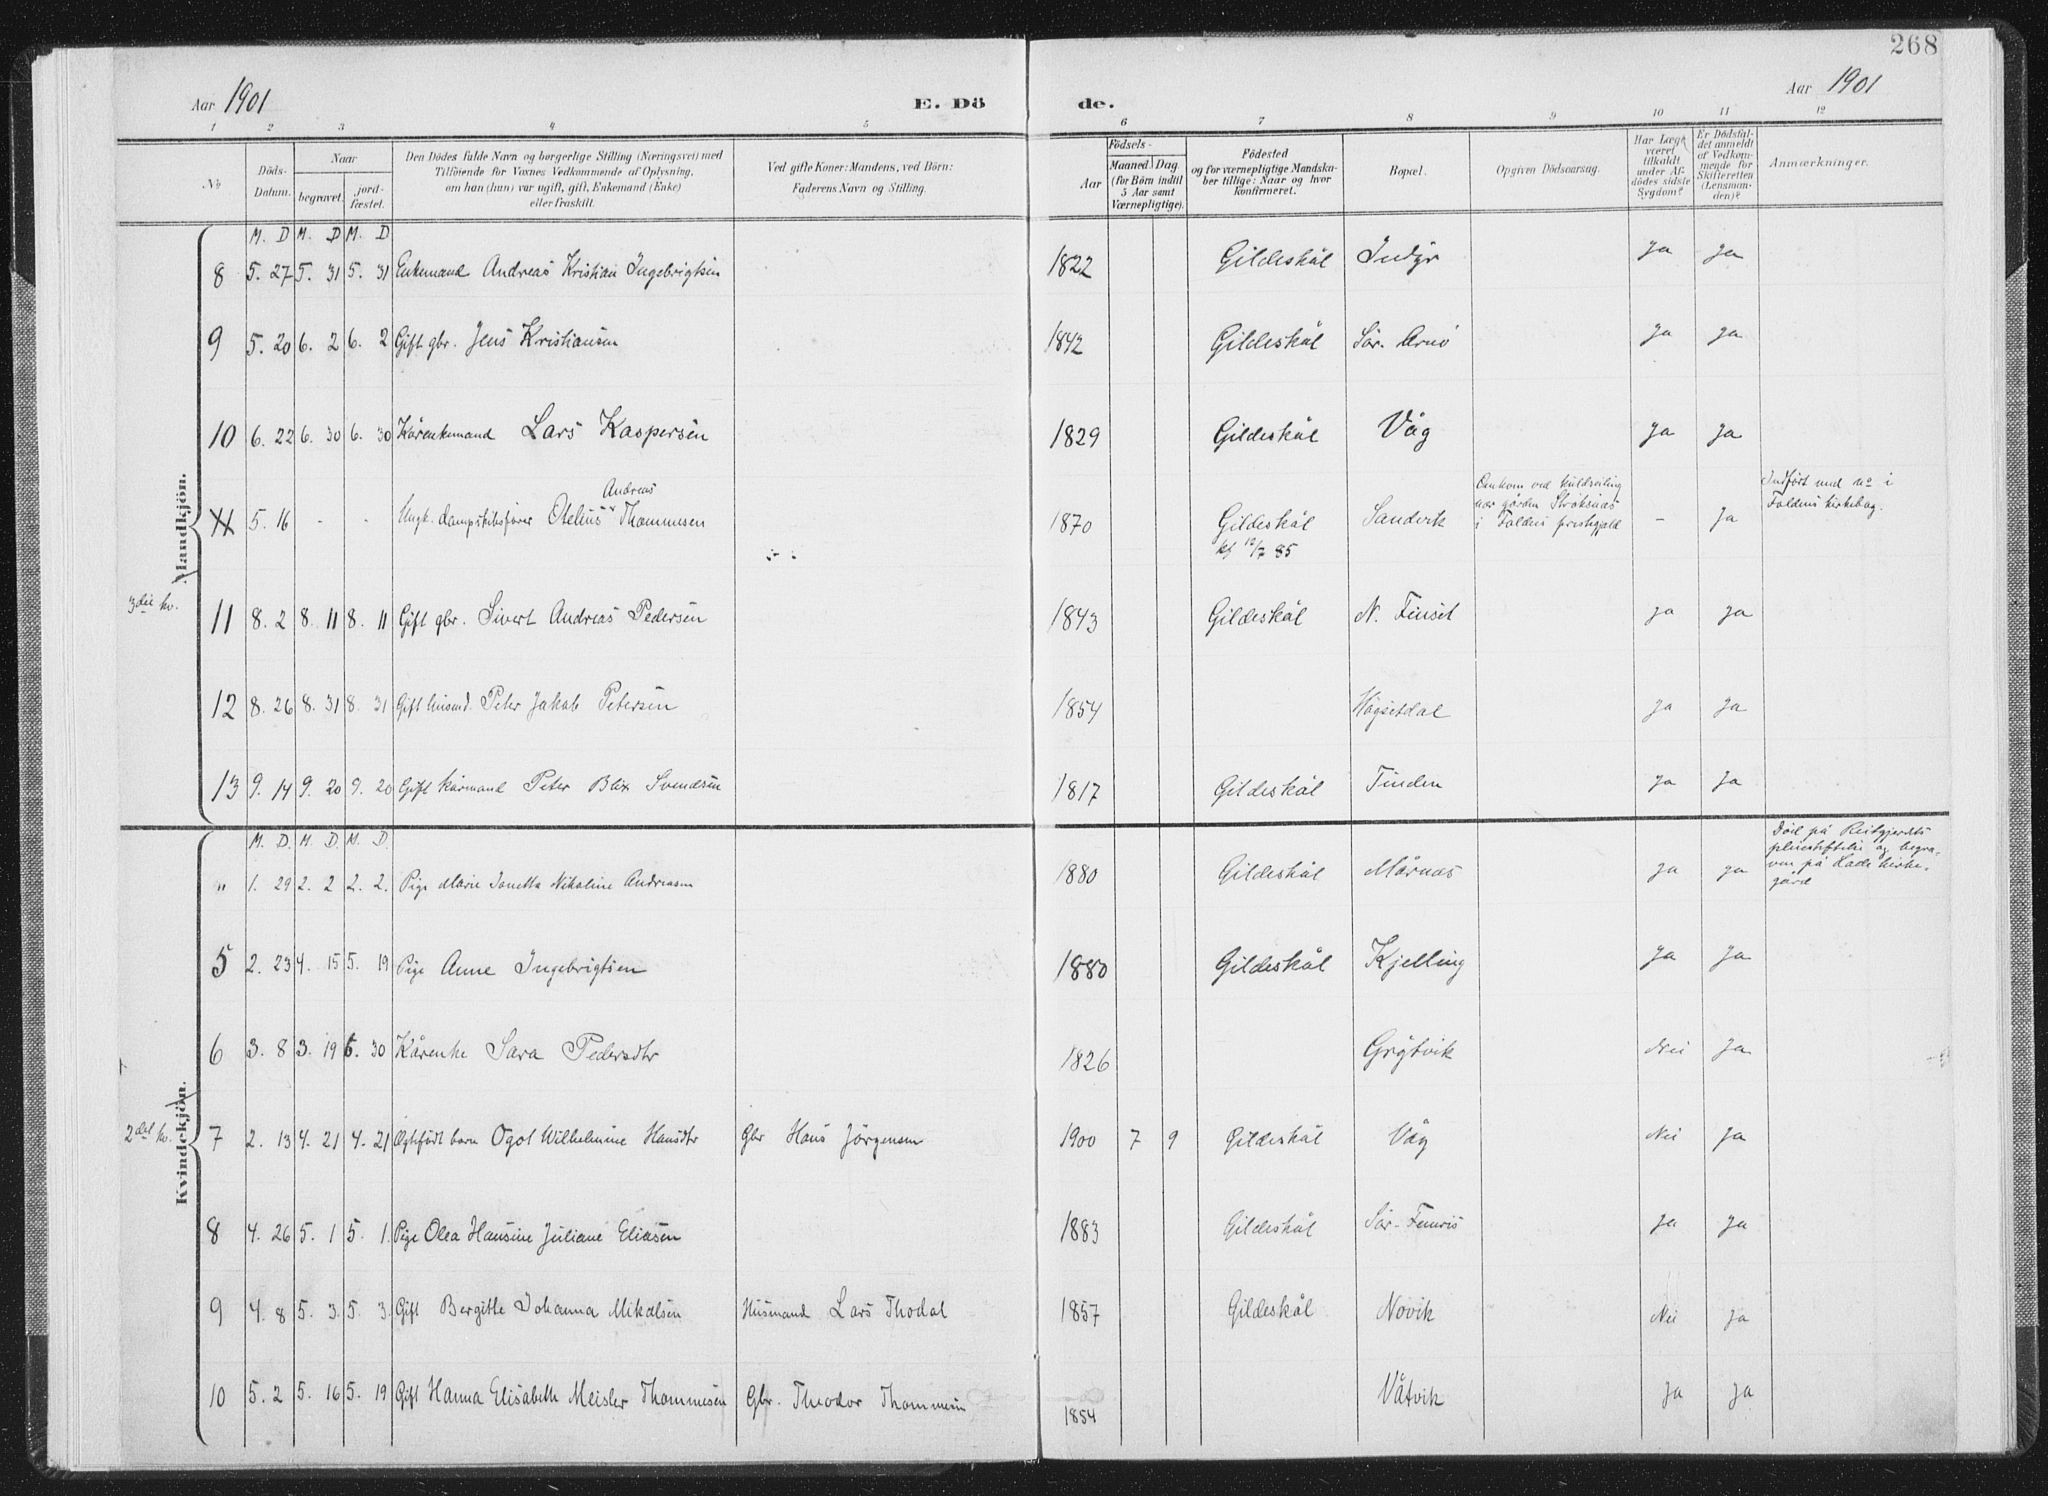 268
Aar 1901
E. Dö de.
Aar 1901
1 2 3 4 5 6 7 8 9 10 11 12
No
Döds-Datum.
Naar
begravet.
jord-fæstet.
Den Dödes fulde Navn og borgerlige Stilling (Næringsvei) med
Tilföiende for Voxnes Vedkommende af Oplysning,
om han (hun) var ugift, gift, Enkemand (Enke)
eller fraskilt.
Ved gifte Koner: Mandens, ved Börn:
Faderens Navn og Stilling.
Födsels-
Aar
Maaned. Dag.
(for Börn indtil
5 Aar samt
Værnepligtige).
Födested
og for værnepligtige Mandska-
ber tillige: Naar og hvor
konfirmeret.
Bopæl.
Opgiven Dödsaarsag.
Har Læge
været
tilkaldt
under Af-
dödes sidste
Sygdom?
Er Dödsfal-
det anmeldt
af Vedkom-
mende for
Skifteretten
(Lensman-
den)?
Anmærkninger.
Mandkjön.
M. D M. D M. D
8 5. 27 5. 31 5. 31 Enkemand Andreas Kristian Ingebrigtsen 1822 Gildeskål Indyr Ja Ja
9 5. 20 6. 2 6. 2 Gift gbr. Jens Kristiansen 1842 Gildeskål Sør. Arnø Ja Ja
10 6. 22 6. 30 6. 30 Kårenkemand Lars Kaspersen 1829 Gildeskål Våg Ja Ja
Andreas
5. 16 - - Ungk. dampskibsfører Otelius Thommesen 1870 Gildeskål Sandvik - Ja
kf 12/7 85
Omkom ved kuldseiling
nær gården Strøksnæs
i Foldens prestegjeld
Indført med no i
Foldens kirkebog.
3die kv.
11 8. 2 8. 11 8. 11 Gift gbr. Sivert Andreas Pedersen 1843 Gildeskål N. Finset Ja Ja
12 8. 26 8. 31 8. 31 Gift husmd. Peter Jakob Petersen 1854 Høgsetdal Ja Ja
13 9. 14 9. 20 9. 20 Gift kårmand Peter Blix Svendsen 1817 Gildeskål Finden Ja Ja
Kvindekjön.
M. D. M. D. M. D.
" 1. 29 2. 2 2. 2. Pige Marie Jonetta Nikoline Andreasen 1880 Gildeskål Mårnæs Ja Ja
Død på Reitgjerdets
pleiestiftelse og begra-
ven på Lade kirke-
gård
5 2. 23 4. 15 5. 19 Pige Anne Ingebrigtsen 1880 Gildeskål Kjelling Ja Ja
6 3. 8 3. 19 6. 30 Kårenke Sara Pedersdtr 1826 Grytvik Nei Ja
2det kv.
7 2. 13 4. 21 4. 21 Ægtefødt barn Ogot Wilhelmine Hansdtr Gbr Hans Jørgensen 1900 7 9 Gildeskål Våg Nei Ja
8 4. 26 5. 1 5. 1. Pige Olea Hansine Juliane Eliasen 1883 Gildeskål Sør-Finnis Ja Ja
9 4. 8 5. 3. 5. 3. Gift Bergitte Johanna Mikalsen Husmand Lars Thodal 1857 Gildeskål Novik Nei Ja
10 5. 2 5. 16 5. 19 Gift Hanna Elisabeth Meisler Thommesen Gbr. Theodor Thommesen 1854 Våtvik Ja Ja